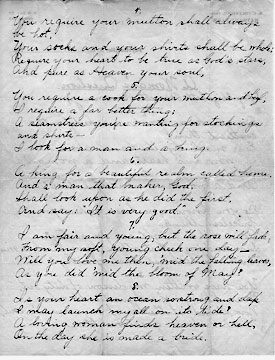 4.
You require your mutton shall always
be hot,
Your socks and your shirts shall be whole;
I require your heart to be true as God's stars,
And pure as Heaven your soul,
5.
You require a cook for your mutton and beef,
I require a far better thing;
A seamstress you're waiting for stockings
and shirts—
I look for a man and a king.
6.
A king for a beautiful realm called home,
And a man that maker, God,
Shall look upon as he did the first,
And say: "It is very good"
7.
I am fair and young, but the rose will fade,
From my soft, young cheek one day—
Will you love me then, 'mid the falling leaves,
As you did 'mid the bloom of May?
8.
Is your heart an ocean so strong and deep
I may launch my all on its tide?
A loving woman finds heaven or hell,
On the day she is made a bride.